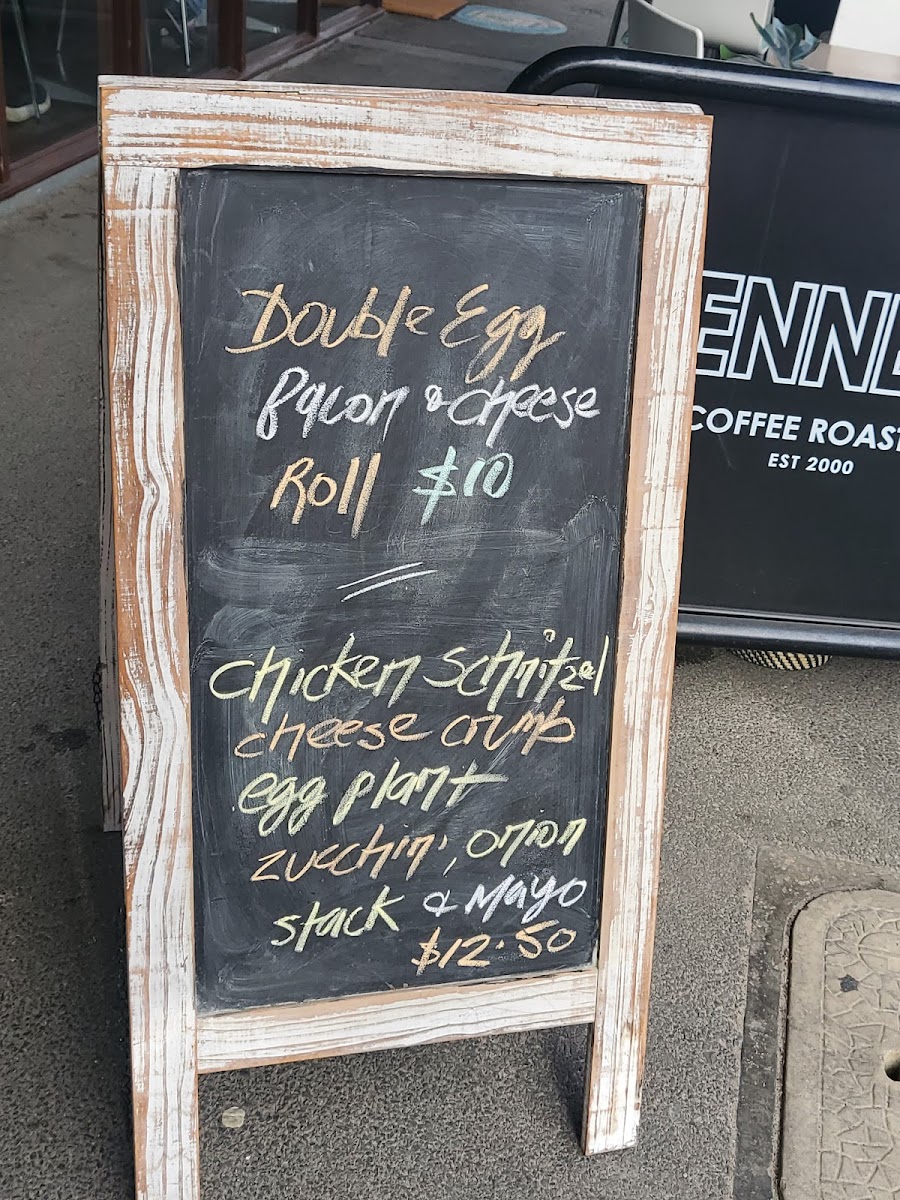 Double Egg
Bacon & cheese
Roll $10
chicken schnitzel
cheese crumb
egg plant
zucchini, onion
stack & Mayo
$12.50
ENNE
COFFEE ROAST
EST 2000